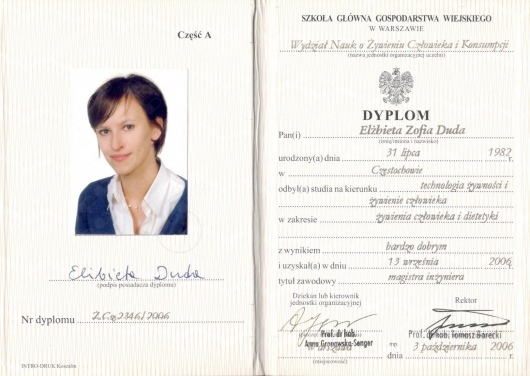 Część A
Elżbieta Duda
(podpis posiadacza dyplomu)
Nr dyplomu Ż.Cz-2346/2006
INTRO-DRUK Koszalin
SZKOŁA GŁÓWNA GOSPODARSTWA WIEJSKIEGO
W WARSZAWIE
Wydział Nauk o Żywieniu Człowieka i Konsumpcji
(nazwa jednostki organizacyjnej uczelni)
DYPLOM
Pan(i) Elżbieta Zofia Duda
(imię/imiona i nazwisko)
urodzony(a) dnia 31 lipca 1982 r.
w Częstochowie
odbył(a) studia na kierunku technologia żywności i
żywienie człowieka
w zakresie żywienia człowieka i dietetyki
z wynikiem bardzo dobrym
i uzyskał(a) w dniu 13 września 2006 r.
tytuł zawodowy magistra inżyniera
Dziekan lub kierownik
jednostki organizacyjnej
Rektor
Prof. dr hab.
Anna Gronowska-Senger
Prof. dr hab. Tomasz Borecki
w Warszawie
mp.
dnia 3 października 2006 r.
(miejscowość)